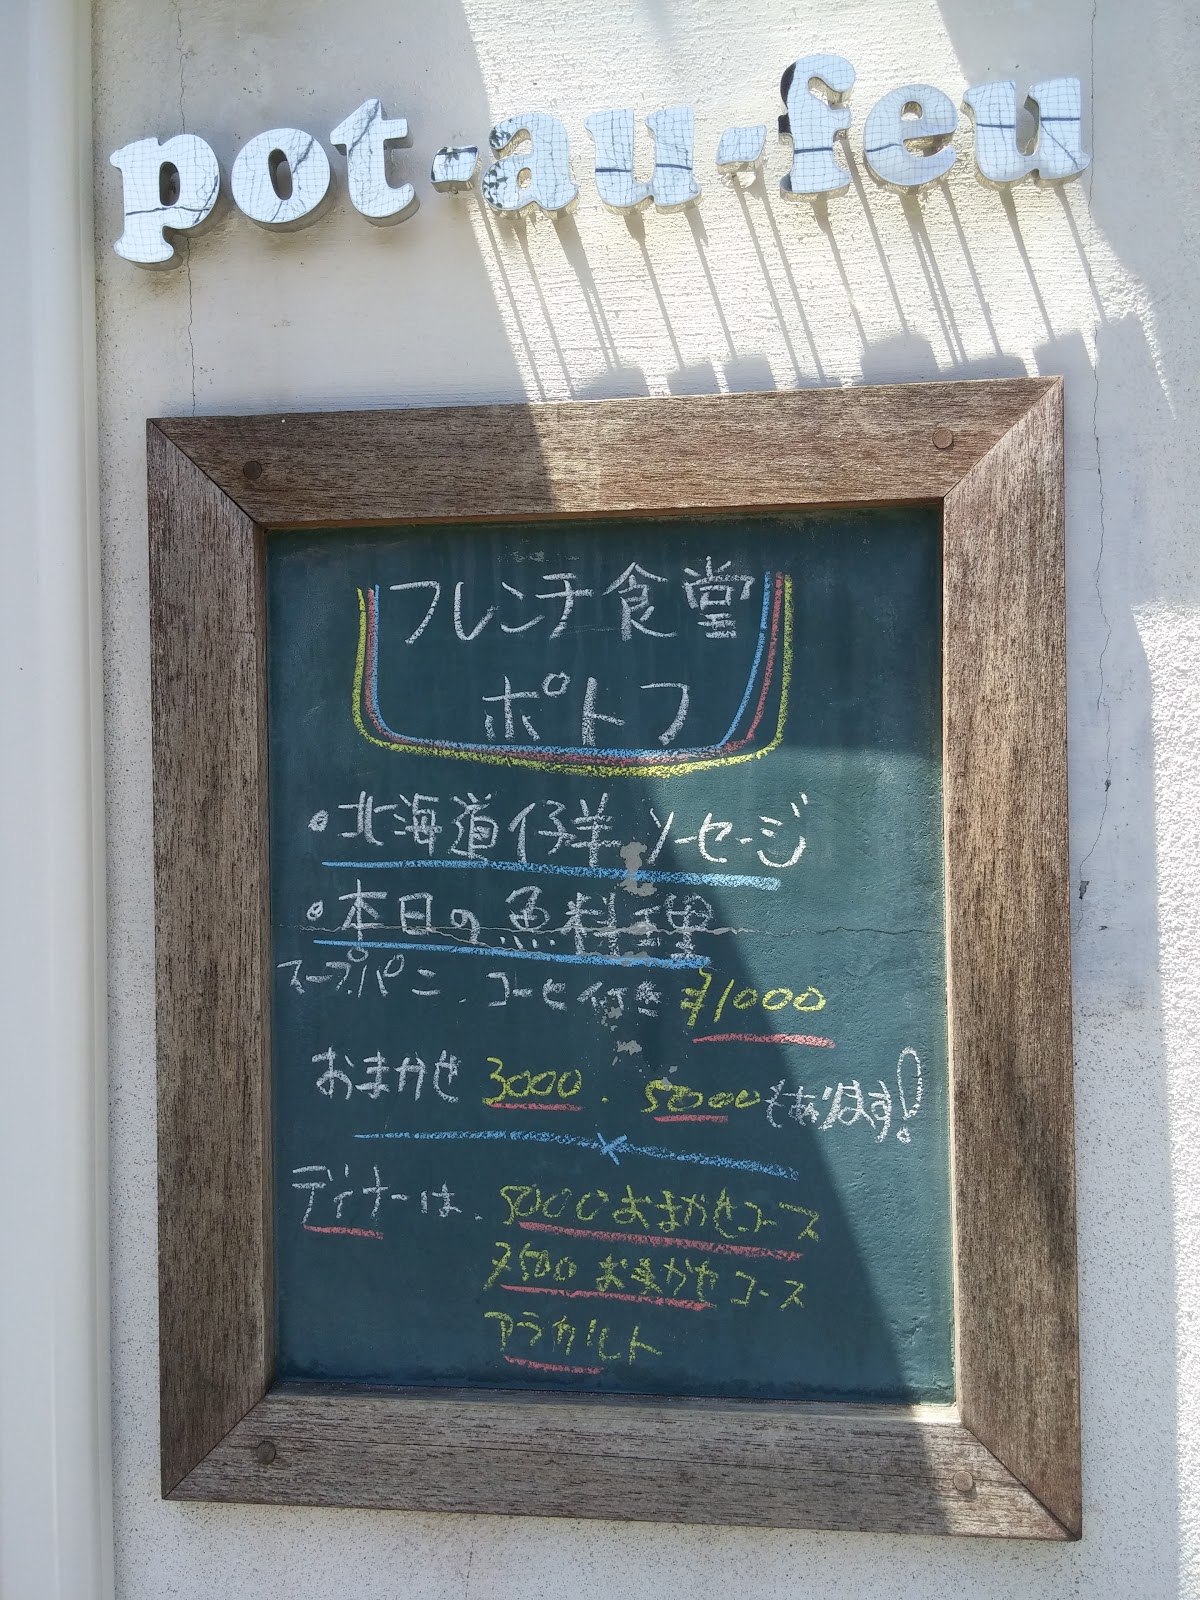 pot-au-feu
フレンチ食堂
ポトフ
・北海道仔羊ソーセージ
・本日の魚料理
スープ、パン、コーヒ付き ¥1000
おまかせ 3000、5000もあります!
ディナーは、5000おまかせコース
7500おまかせコース
アラカルト